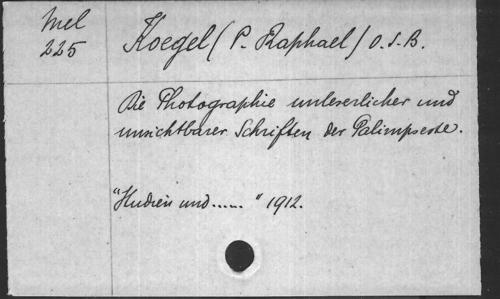 Mel
225
Koegel (P. Raphael) O.S.B.
Die Photographie unleserlicher und
unsichtbarer Schriften der Palimpseste.
"Studien und......" 1912.